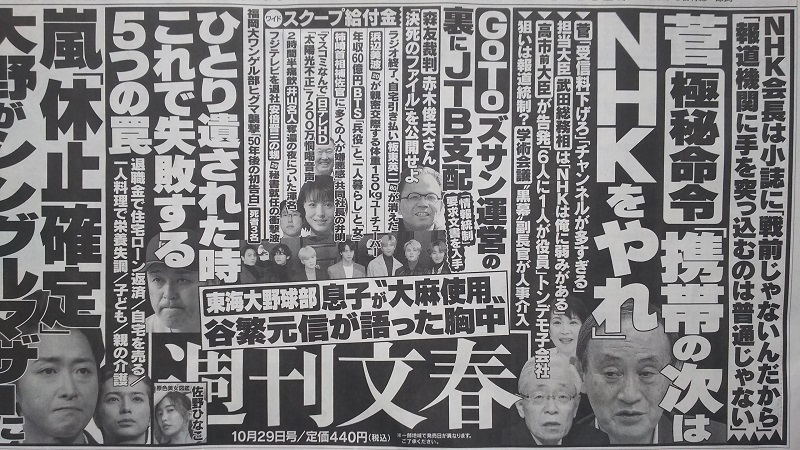 NHK会長は小誌に「戦前じゃないんだから
「報道機関に手を突っ込むのは普通じゃない」
菅極秘命令「携帯の次は
NHKをやれ」
菅「受信料下げろ」「チャンネルが多すぎる」
担当大臣武田総務相は「NHKは俺に弱みがある」
高市前大臣が告発「6人に1人が役員」トンデモ子会社
狙いは報道統制?「学術会議」黒幕副長官が人事介入
GoToズサン運営の
裏にJTB支配
「情報統制」
要求文書を入手
森友裁判 赤木俊夫さん
「決死のファイル」を公開せよ
ワイド スクープ給付金
ラジオ終了、自宅引き払い
年収60億円BTS「兵役」と「一人暮らしと女」
マスコミなんで日テレHD
「太陽光不正」7200万恫喝音声
福岡大ワンゲル部ヒグマ襲撃50年後の初告白
死者3名
ひとり遺された時
これで失敗する
5つの罠
退職金で住宅ローン返済/自宅を売る/
一人料理で栄養失調/子ども/親の介護
嵐「休止確定」
大野がシングルマザーに
東海大野球部 息子が“大麻使用”
谷繁元信が語った胸中
原色美女図鑑
佐野ひなこ
週刊文春
10月29日号/定価440円(税込)
※一部地域で発売日が異なります。
ご了承ください。